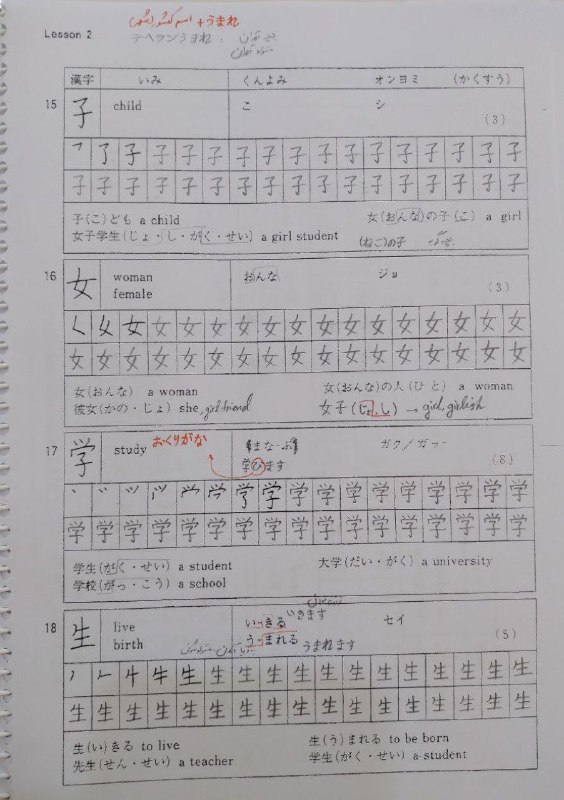 Lesson 2
(شهر) اسم کشور + うまれ
テヘランうまれ
漢字 いみ くんよみ オンヨミ (かくすう)
15 子 child こ シ (3)
子 子 子 子 子 子 子 子 子 子 子 子 子 子 子
子 子 子 子 子 子 子 子 子 子 子 子 子 子 子 子 子
子(こ)ども a child 女(おんな)の子(こ) a girl
女子学生(じょ・し・がく・せい) a girl student (ねこ)の子
16 女 woman female おんな ジョ (3)
く 女 女 女 女 女 女 女 女 女 女 女 女 女 女 女
女 女 女 女 女 女 女 女 女 女 女 女 女 女 女 女 女
女(おんな) a woman 女(おんな)の人(ひと) a woman
彼女(かの・じょ) she, girl friend 女子(じょ.し) → girl, girlish
17 学 study おくりがな まな-ぶ ガク/ガッ- (8)
学びます
学 学 学 学 学 学 学 学 学 学 学
学 学 学 学 学 学 学 学 学 学 学 学 学 学 学 学 学
学生(がく・せい) a student 大学(だい・がく) a university
学校(がっ・こう) a school
18 生 live birth い-きる いきます セイ (5)
う-まれる うまれます
生 生 生 生 生 生 生 生 生 生 生 生 生
生 生 生 生 生 生 生 生 生 生 生 生 生 生 生 生 生
生(い)きる to live 生(う)まれる to be born
先生(せん・せい) a teacher 学生(がく・せい) a student